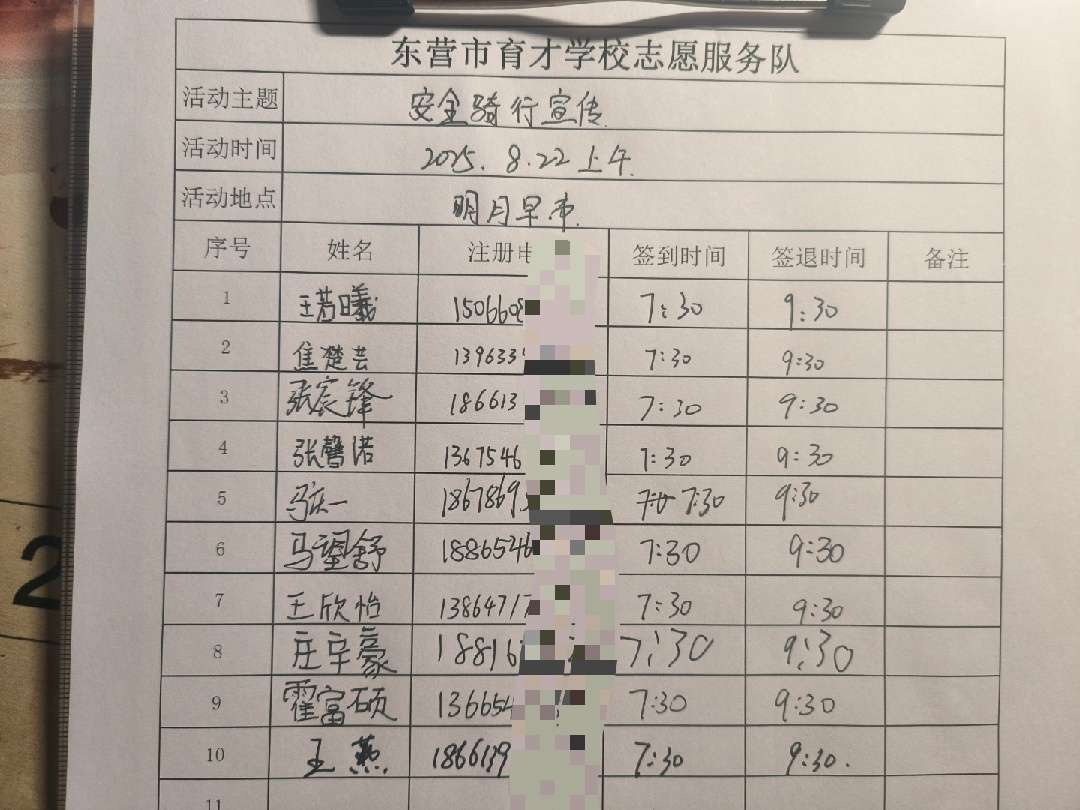 东营市育才学校志愿服务队
活动主题 安全骑行宣传
活动时间 2025.8.22上午.
活动地点 明月早市.
序号 姓名 注册电 签到时间 签退时间 备注
1 王若曦 1506608 7:30 9:30
2 焦楚芸 139633 7:30 9:30
3 张宸锋 186613 7:30 9:30
4 张馨诺 1367546 7:30 9:30
5 1867869 7:30 9:30
6 马望舒 1886546 7:30 9:30
7 王欣怡 1386471 7:30 9:30
8 庄宇豪 18816 7:30 9:30
9 霍富硕 136654 7:30 9:30
10 王燕 1866139 7:30 9:30.
11
2